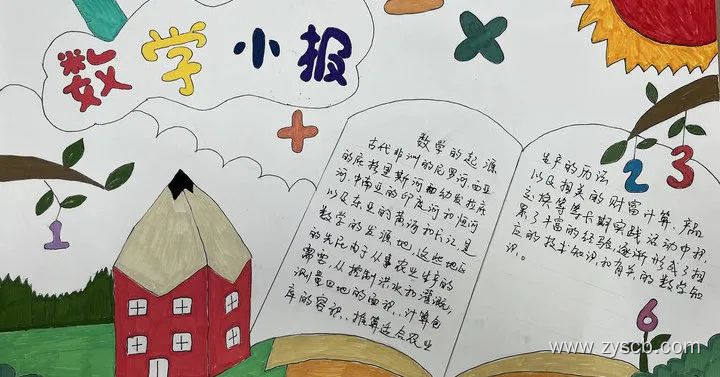 数学小报
+
×
1
2
3
6
数学的起源
古代非洲的尼罗河、西亚
的底格里斯河和幼发拉底
河、中南亚的印度河和恒河
以及东亚的黄河和长江是
数学的发源地,这些地区
的先民由于从事农业生产的
需要,从控制洪水和灌溉,
测量田地的面积、计算仓
库的容积、推算适合农业
生产的历法
以及相关的财富计算、产品
交换等等长期实践活动中积
累了丰富的经验,逐渐形成了相
应的技术知识和有关的数学知
识。
www.zyscb.com